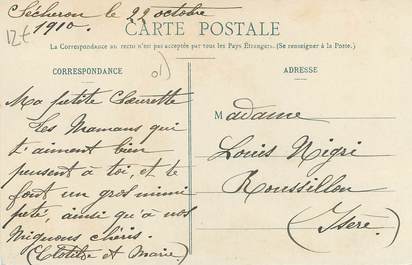 Sécheron le 22 octobre
1910.
12€
CARTE POSTALE
La Correspondance au recto n'est pas acceptée par tous les Pays Étrangers. (Se renseigner à la Poste.)
CORRESPONDANCE
Ma petite Claurette
Les Mamans qui
t'aiment bien
pensent à toi, et te
font un gros mimi
peté, ainsi qu'a nos
mignons chéris.
(Clotilde et Marie)
ADRESSE
Madame
Louis Nigri
Roussillon
(Isere)